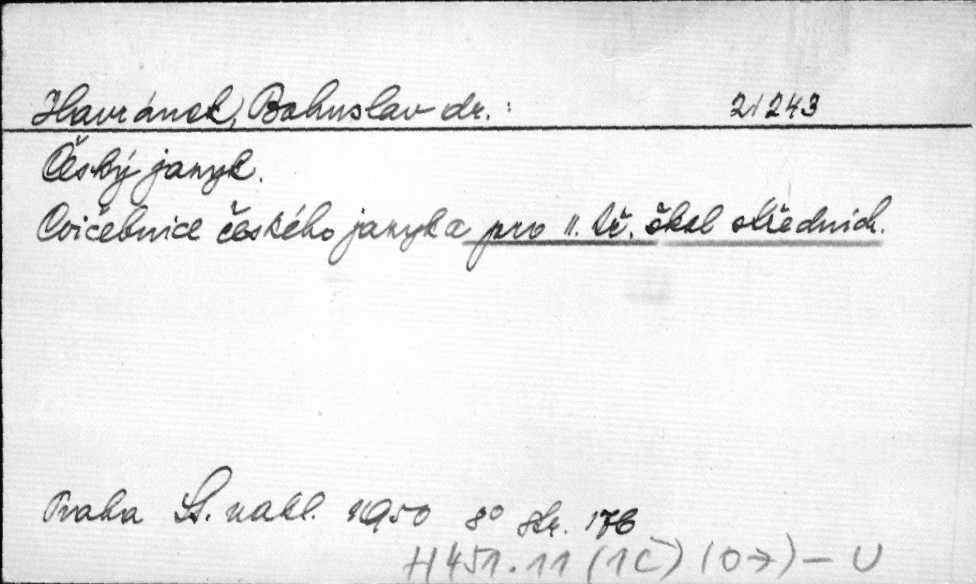 Havránek, Bohuslav dr.: 21243
Český jazyk.
Cvičebnice českého jazyka pro II. tř. škol středních.
Praha St. nakl. 1950 8° str. 176
H451.11 (1Č) (0→) – U